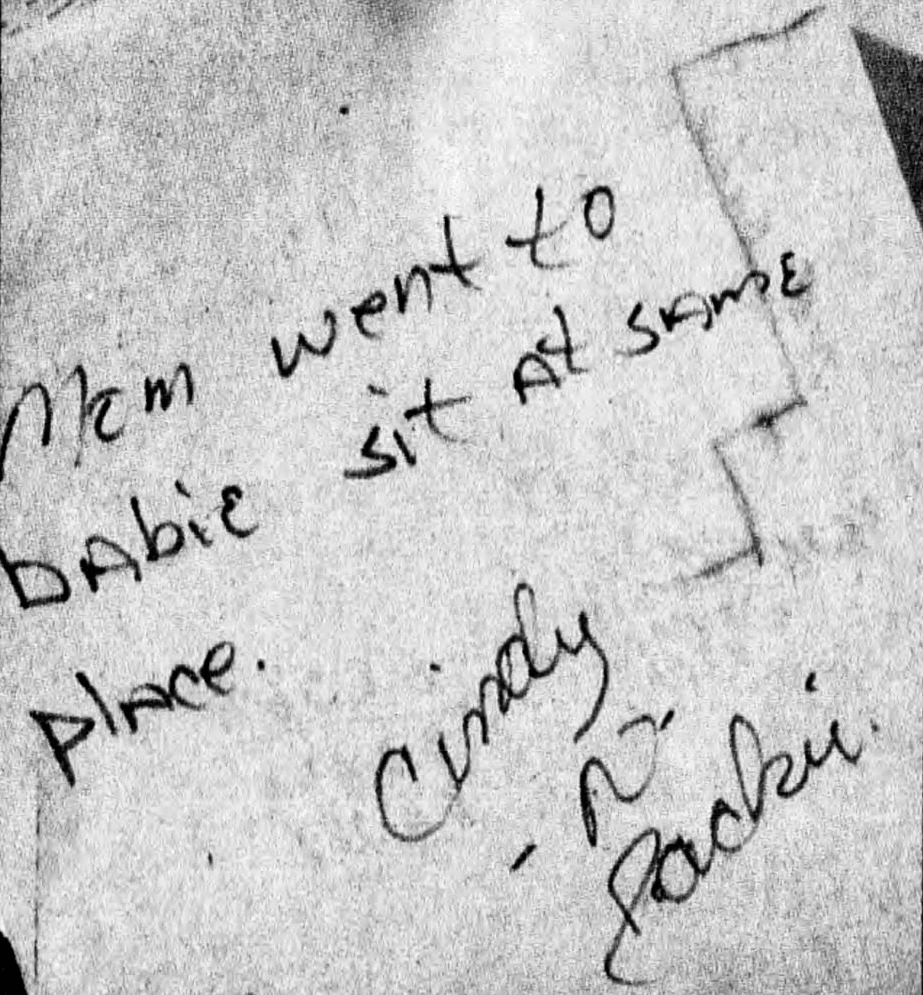 Mom went to
babie sit At SAME
place.
Cindy
- N -
Jackie.